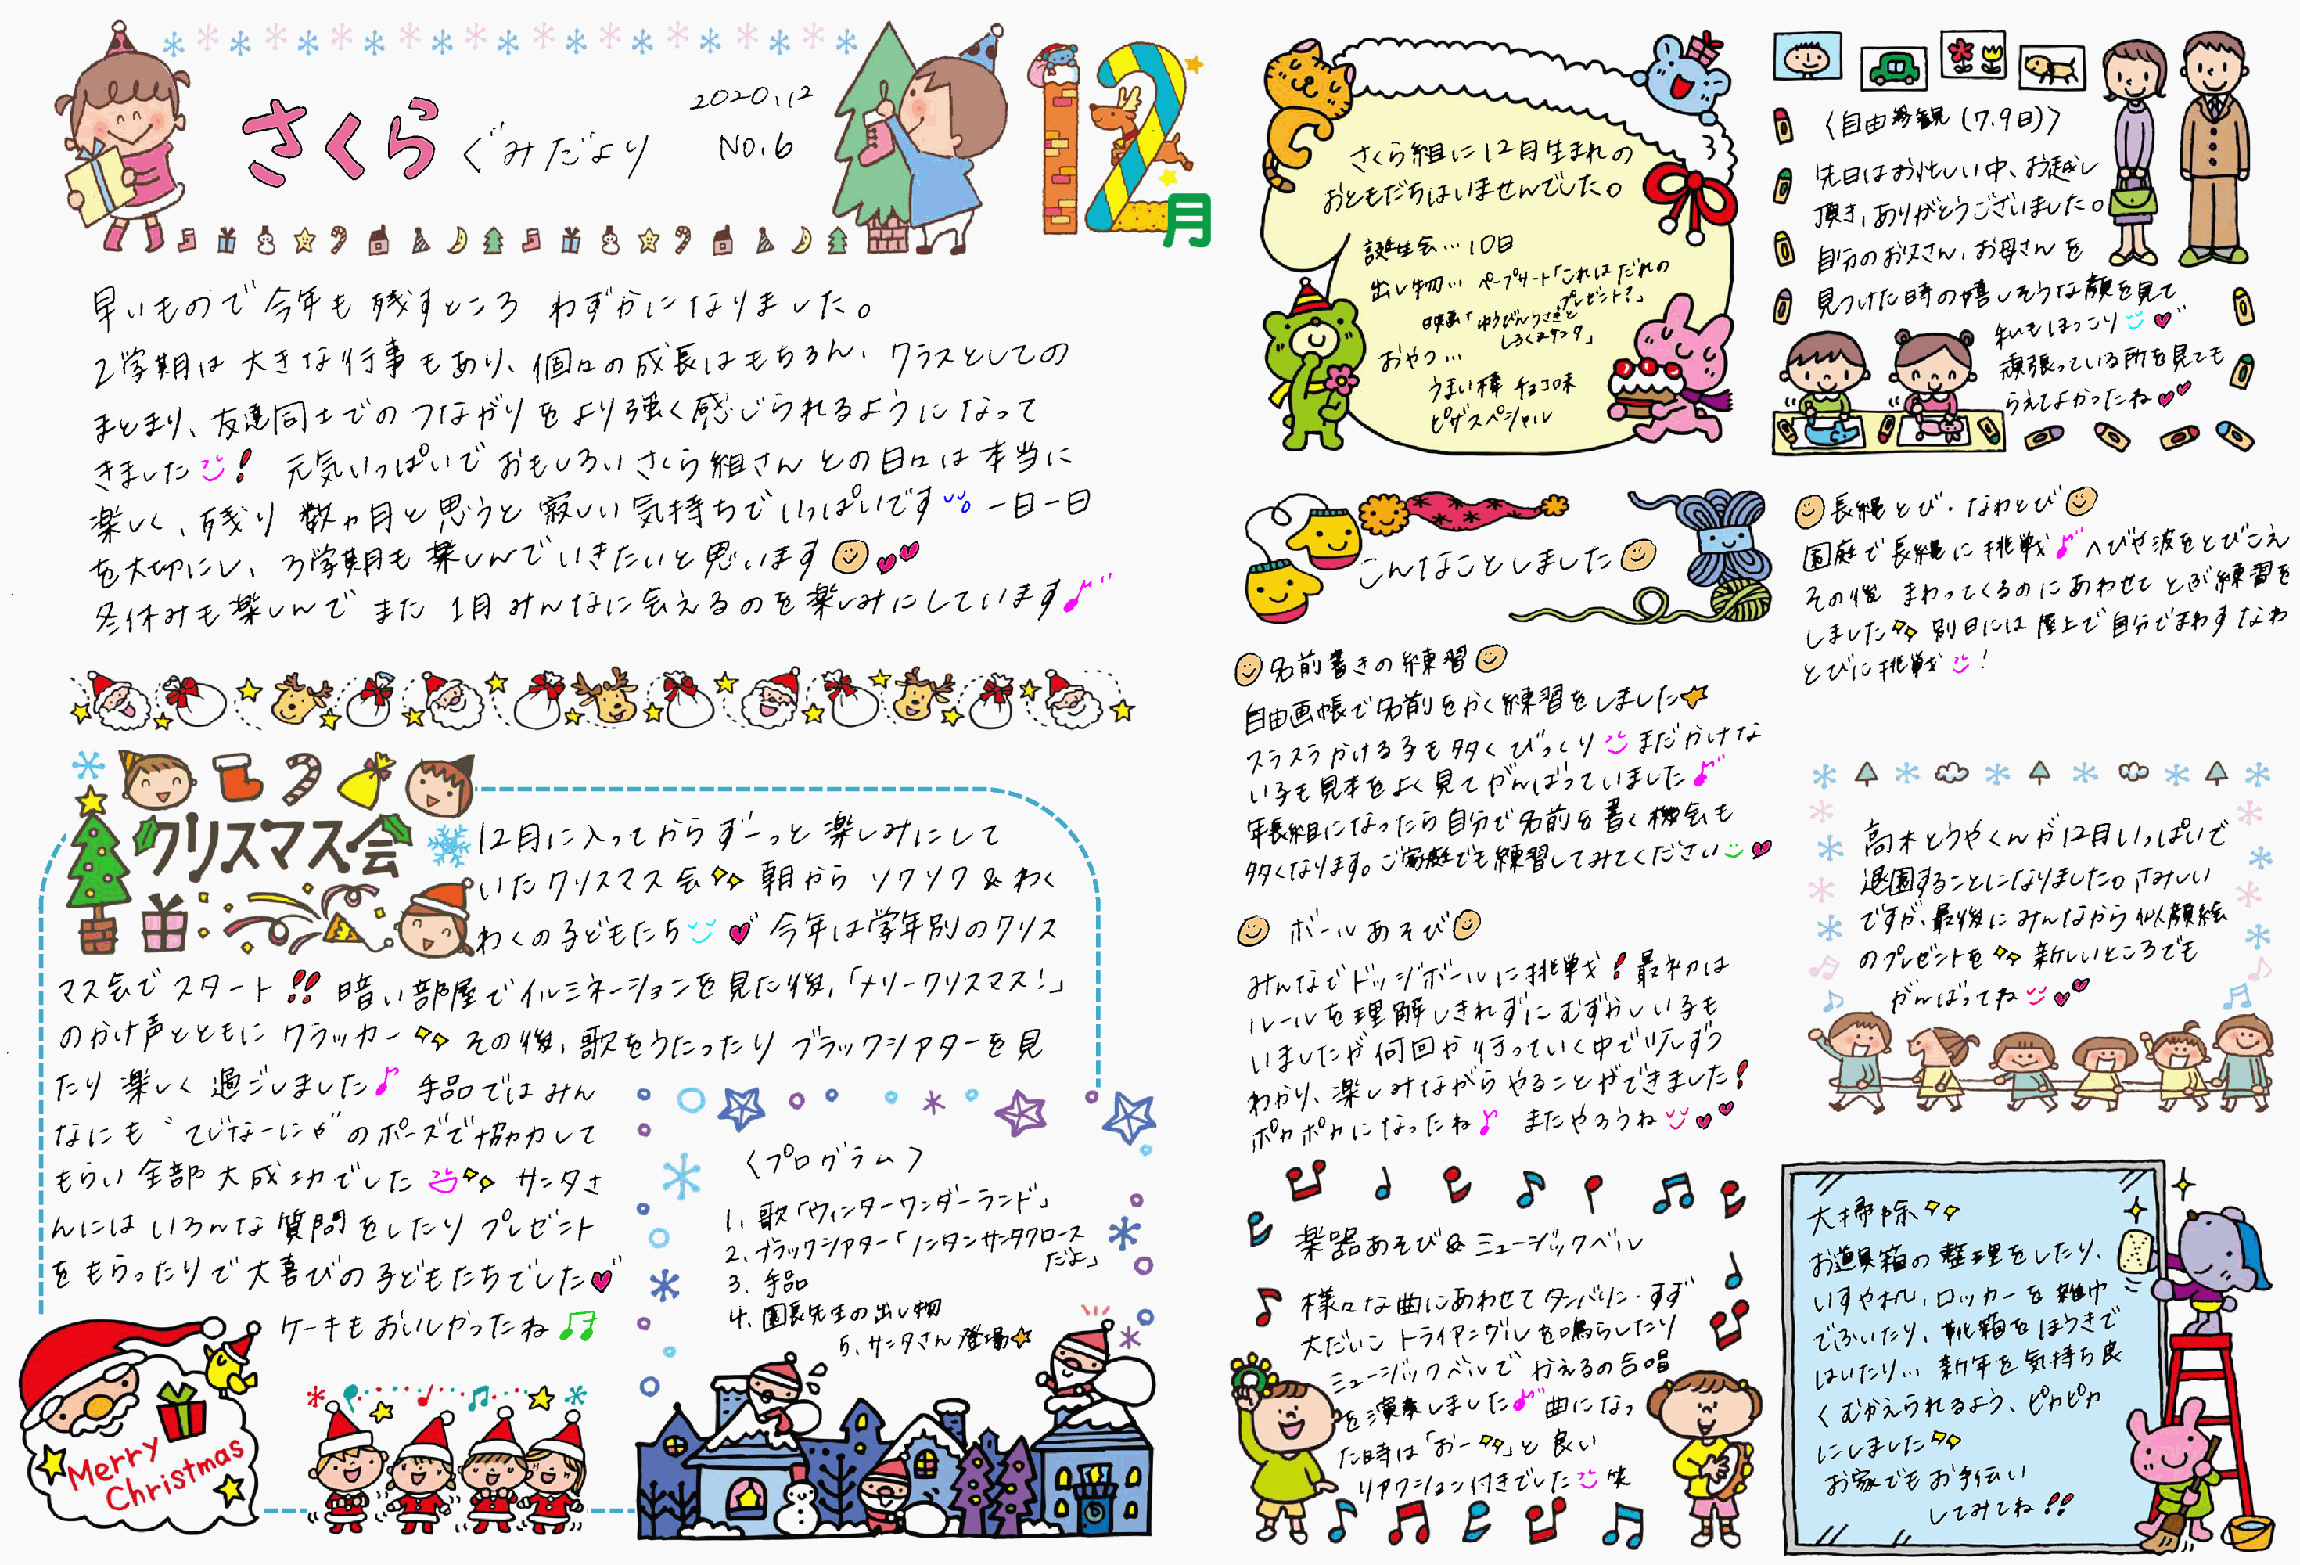 さくらぐみだより
2020.12
No.6
12月
早いもので今年も残すところ わずかになりました。
2学期は大きな行事もあり、個々の成長はもちろん、クラスとしての
まとまり、友達同士でのつながりをより強く感じられるようになって
きました! 元気いっぱいでおもしろいさくら組さんとの日々は本当に
楽しく、残り数ヵ月と思うと寂しい気持ちでいっぱいです 一日一日
を大切にし、3学期も楽しんでいきたいと思います
冬休みも楽しんでまた1月みんなに会えるのを楽しみにしています♪
クリスマス会
12月に入ってからずーっと楽しみにして
いたクリスマス会 朝からソワソワ&わく
わくの子どもたち 今年は学年別のクリス
マス会でスタート!! 暗い部屋でイルミネーションを見た後、「メリークリスマス!」
のかけ声とともにクラッカー その後、歌をうたったりブラックシアターを見
たり楽しく過ごしました♪ 手品ではみん
なにも“てじなーにゃ”のポーズで協力して
もらい全部大成功でした サンタさ
んにはいろんな質問をしたりプレゼント
をもらったりで大喜びの子どもたちでした
ケーキもおいしかったね♫
Merry
Christmas
〈プログラム〉
1. 歌「ウィンターワンダーランド」
2. ブラックシアター「ノンタンサンタクロース
だよ」
3. 手品
4. 園長先生の出し物
5. サンタさん登場
さくら組に12月生まれの
おともだちはいませんでした。
誕生会…10日
出し物… ペープサート「これはだれの
プレゼント?」
映画「ゆうびんうさぎと
しろくまサンタ」
おやつ…
うまい棒 チョコ味
ピザスペシャル
〈自由参観(7.9日)〉
先日はお忙しい中、お越し
頂き、ありがとうございました。
自分のお父さん、お母さんを
見つけた時の嬉しそうな顔を見て
私もほっこり
頑張っている所を見ても
らえてよかったね
こんなことしました
名前書きの練習
自由画帳で名前をかく練習をしました
スラスラかける子も多くびっくり まだかけな
い子も見本をよく見てがんばっていました♪
年長組になったら自分で名前を書く機会も
多くなります。ご家庭でも練習してみてください
ボールあそび
みんなでドッジボールに挑戦! 最初は
ルールを理解しきれずにむずかしい子も
いましたが何回か行っていく中で少しずつ
わかり、楽しみながらやることができました!
ポカポカになったね♪ またやろうね
楽器あそび&ミュージックベル
様々な曲にあわせてタンバリン・すず
大だいこ トライアングルを鳴らしたり
ミュージックベルでかえるの合唱
を演奏しました♪ 曲になっ
た時は「おー」と良い
リアクション付きでした 笑
長縄とび・なわとび
園庭で長縄に挑戦♪ へびや波をとびこえ
その後まわってくるのにあわせてとぶ練習を
しました 別日には屋上で自分でまわすなわ
とびに挑戦!
高木とうやくんが12月いっぱいで
退園することになりました。さみしい
ですが、最後にみんなから似顔絵
のプレゼントを 新しいところでも
がんばってね
大掃除
お道具箱の整理をしたり、
いすや机、ロッカーを雑巾
でふいたり、靴箱をほうきで
はいたり… 新年を気持ち良
くむかえられるよう、ピカピカ
にしました
お家でもお手伝い
してみてね!!